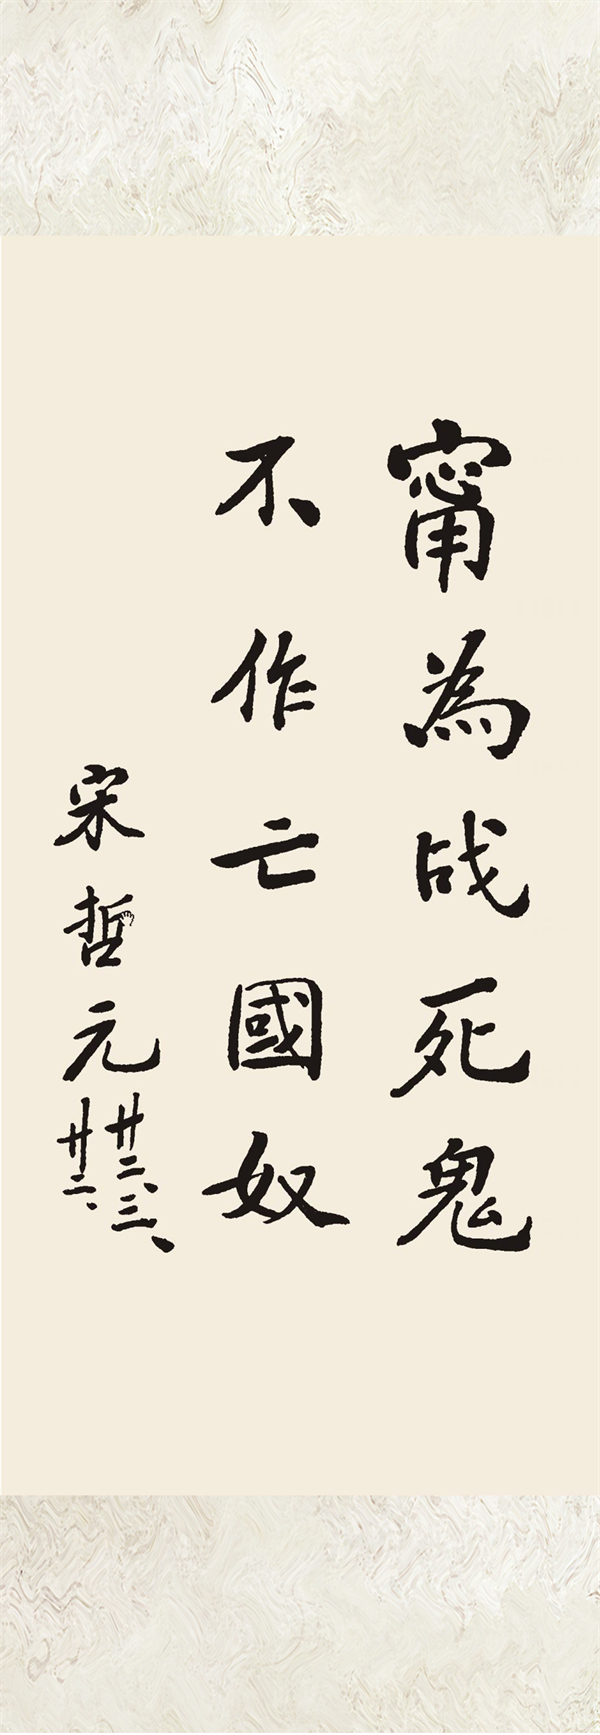 甯為战死鬼
不作亡國奴
宋哲元
廿二、三、
廿二、